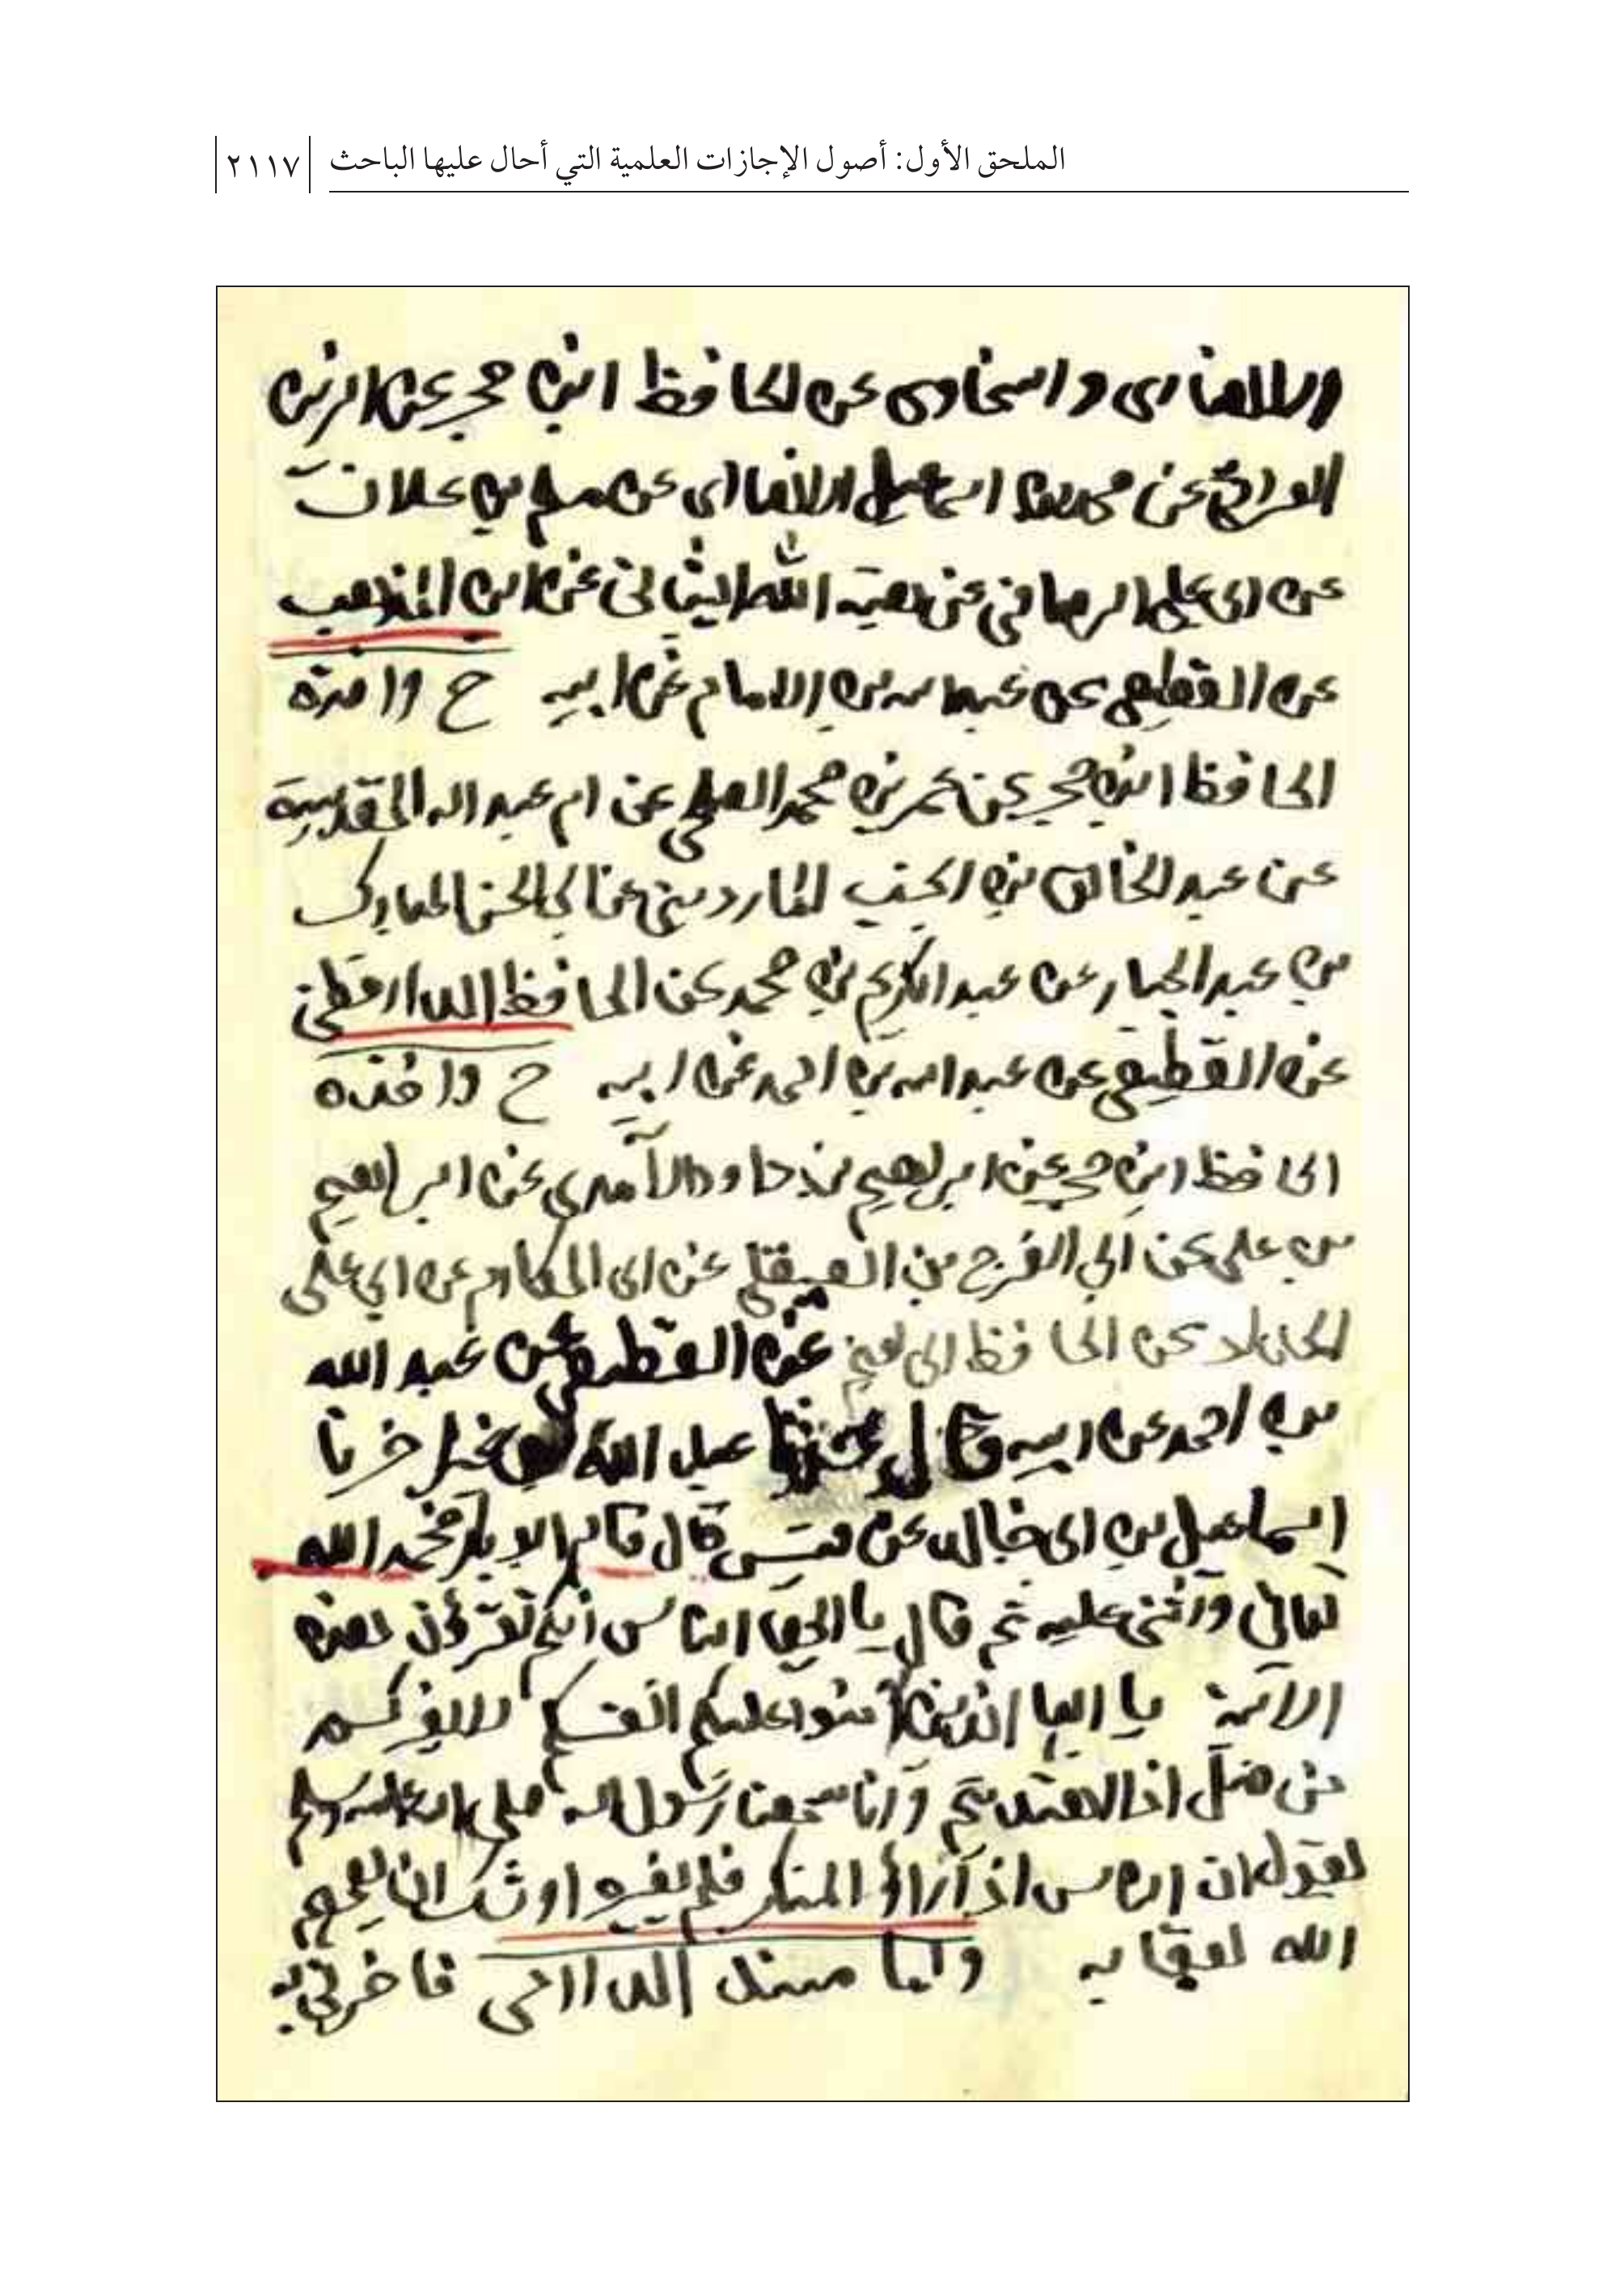 الملحق الأول: أصول الإجازات العلمية التي أحال عليها الباحث ٢١١٧
والانصاری و السخاوی عن الحافظ ابن حجر عن الزين
العراقي عن محمد بن اسماعيل الانصاری عن مسلم بن علان
عن ابی علی الرصافي عن هبة الله الشيبانی عن ابن المذهب
عن القطيعی عن عبد الله بن الامام عن ابيه ح واخذه
الحافظ ابن حجر عن عمر بن محمد عن ام عبد الله المقدسية
عن عبد الخالق بن انجب الماردينی عن ابی الحسن المبارك
بن عبد الجبار عن عبد الكريم بن محمد عن الحافظ الدارقطنی
عن القطيعی عن عبد الله بن احمد عن ابيه ح واخذه
الحافظ ابن حجر عن ابراهيم بن داود الآمدی عن ابراهيم
بن علی عن ابی الفرج بن الصيقلی عن ابی المكارم عن ابی علی
الحداد عن الحافظ ابی نعيم عن القطيعی عن عبد الله
بن احمد عن ابيه وقال عبد الله اخبرنا
اسماعيل بن ابی خالد عن قيس قال قام ابو بكر فحمد الله
تعالی واثنی عليه ثم قال يا ايها الناس انكم تقرؤن هذه
الآية يا ايها الذين آمنوا عليكم انفسكم لا يضركم
من ضل اذا اهتديتم وانا سمعنا رسول الله صلی الله عليه وسلم
يقول ان الناس اذا رأوا المنكر فلم يغيروه اوشك ان يعمهم
الله بعقابه واما مسند الدارمی فاخبرنی به